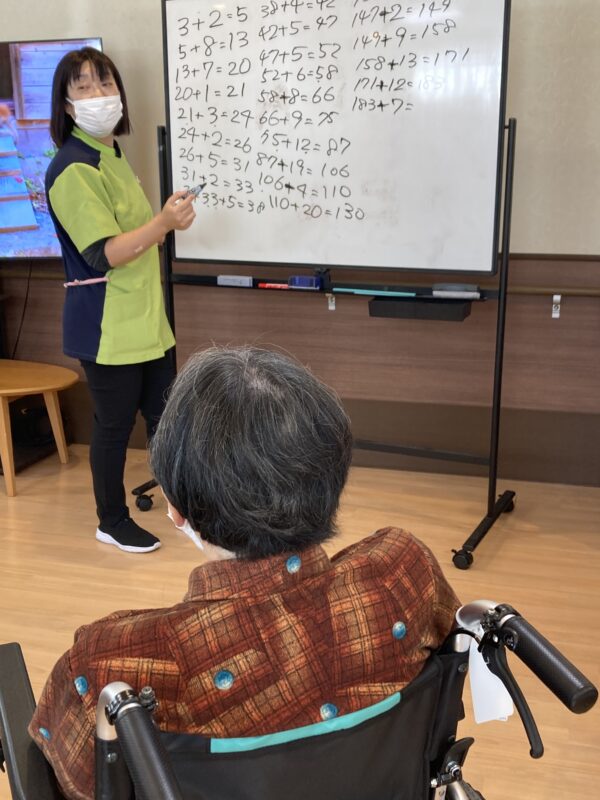 3+2=5
5+8=13
13+7=20
20+1=21
21+3=24
24+2=26
26+5=31
31+2=33
33+5=38
38+4=42
42+5=47
47+5=52
52+6=58
58+8=66
66+9=75
75+12=87
87+19=106
106+4=110
110+20=130
147+2=149
149+9=158
158+13=171
171+12=183
183+7=